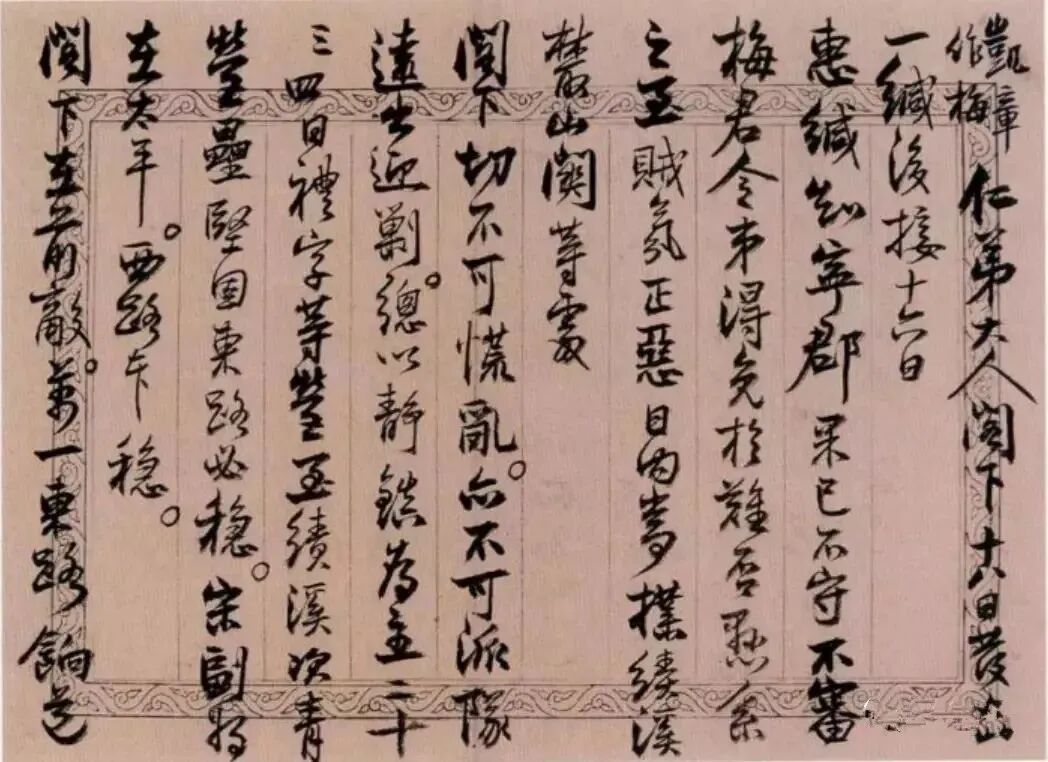 凱章
作梅
仁弟大人閣下十八日發出
一緘後接十六日
惠緘知寧郡果已不守不審
梅君令弟得免於難否懸系
之至賊氛正惡日內當撲績溪
叢山關等處
閣下切不可慌亂。亦不可派隊
遠出迎剿。總以靜鎮為主二十
三四日禮字等營至績溪次青
營壘堅固東路必穩。宋副將
在太平。西路穩。
閣下在前敵。萬一東路餉道